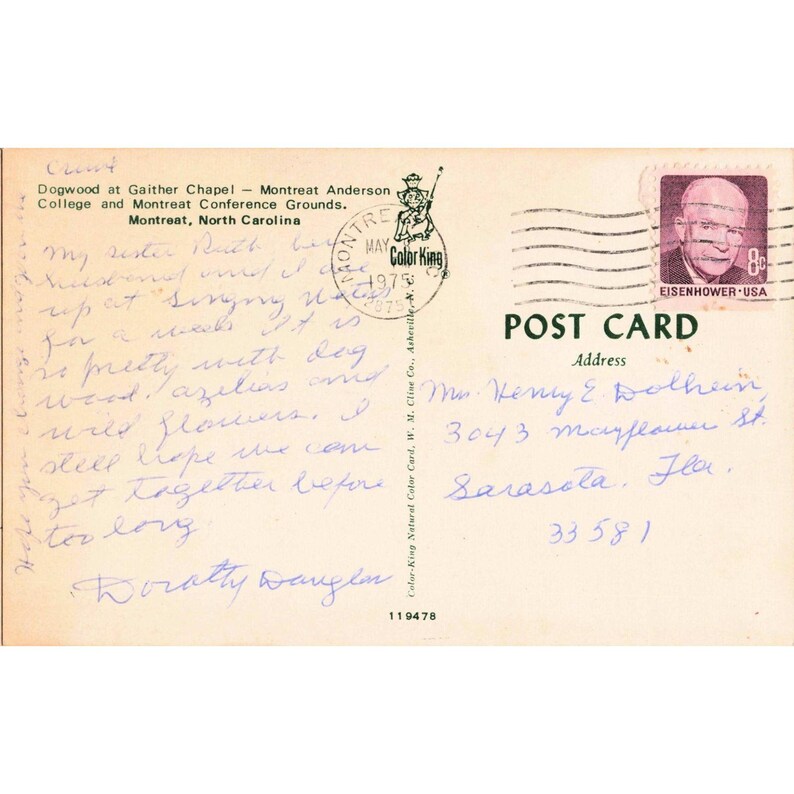 Dogwood at Gaither Chapel — Montreat Anderson
College and Montreat Conference Grounds.
Montreat, North Carolina
My sister Ruth her
husband and I are
up at Singing Waters
for a week. It is
so pretty with dog
wood, azelias and
wild flowers. I
still hope we can
get together before
too long.
Dorothy Douglas
Color King®
MONTREAT
MAY
1975
1975
N. C.
Color-King Natural Color Card, W. M. Cline Co., Asheville, N. C.
119478
8c
EISENHOWER · USA
POST CARD
Address
Mrs. Henry E. Dolhein,
3043 Mayflower St.
Sarasota, Fla.
33581